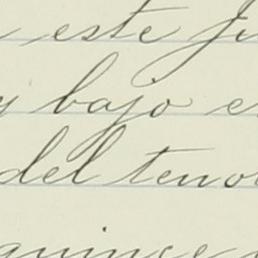 este Ju
y bajo e
del teno
quince